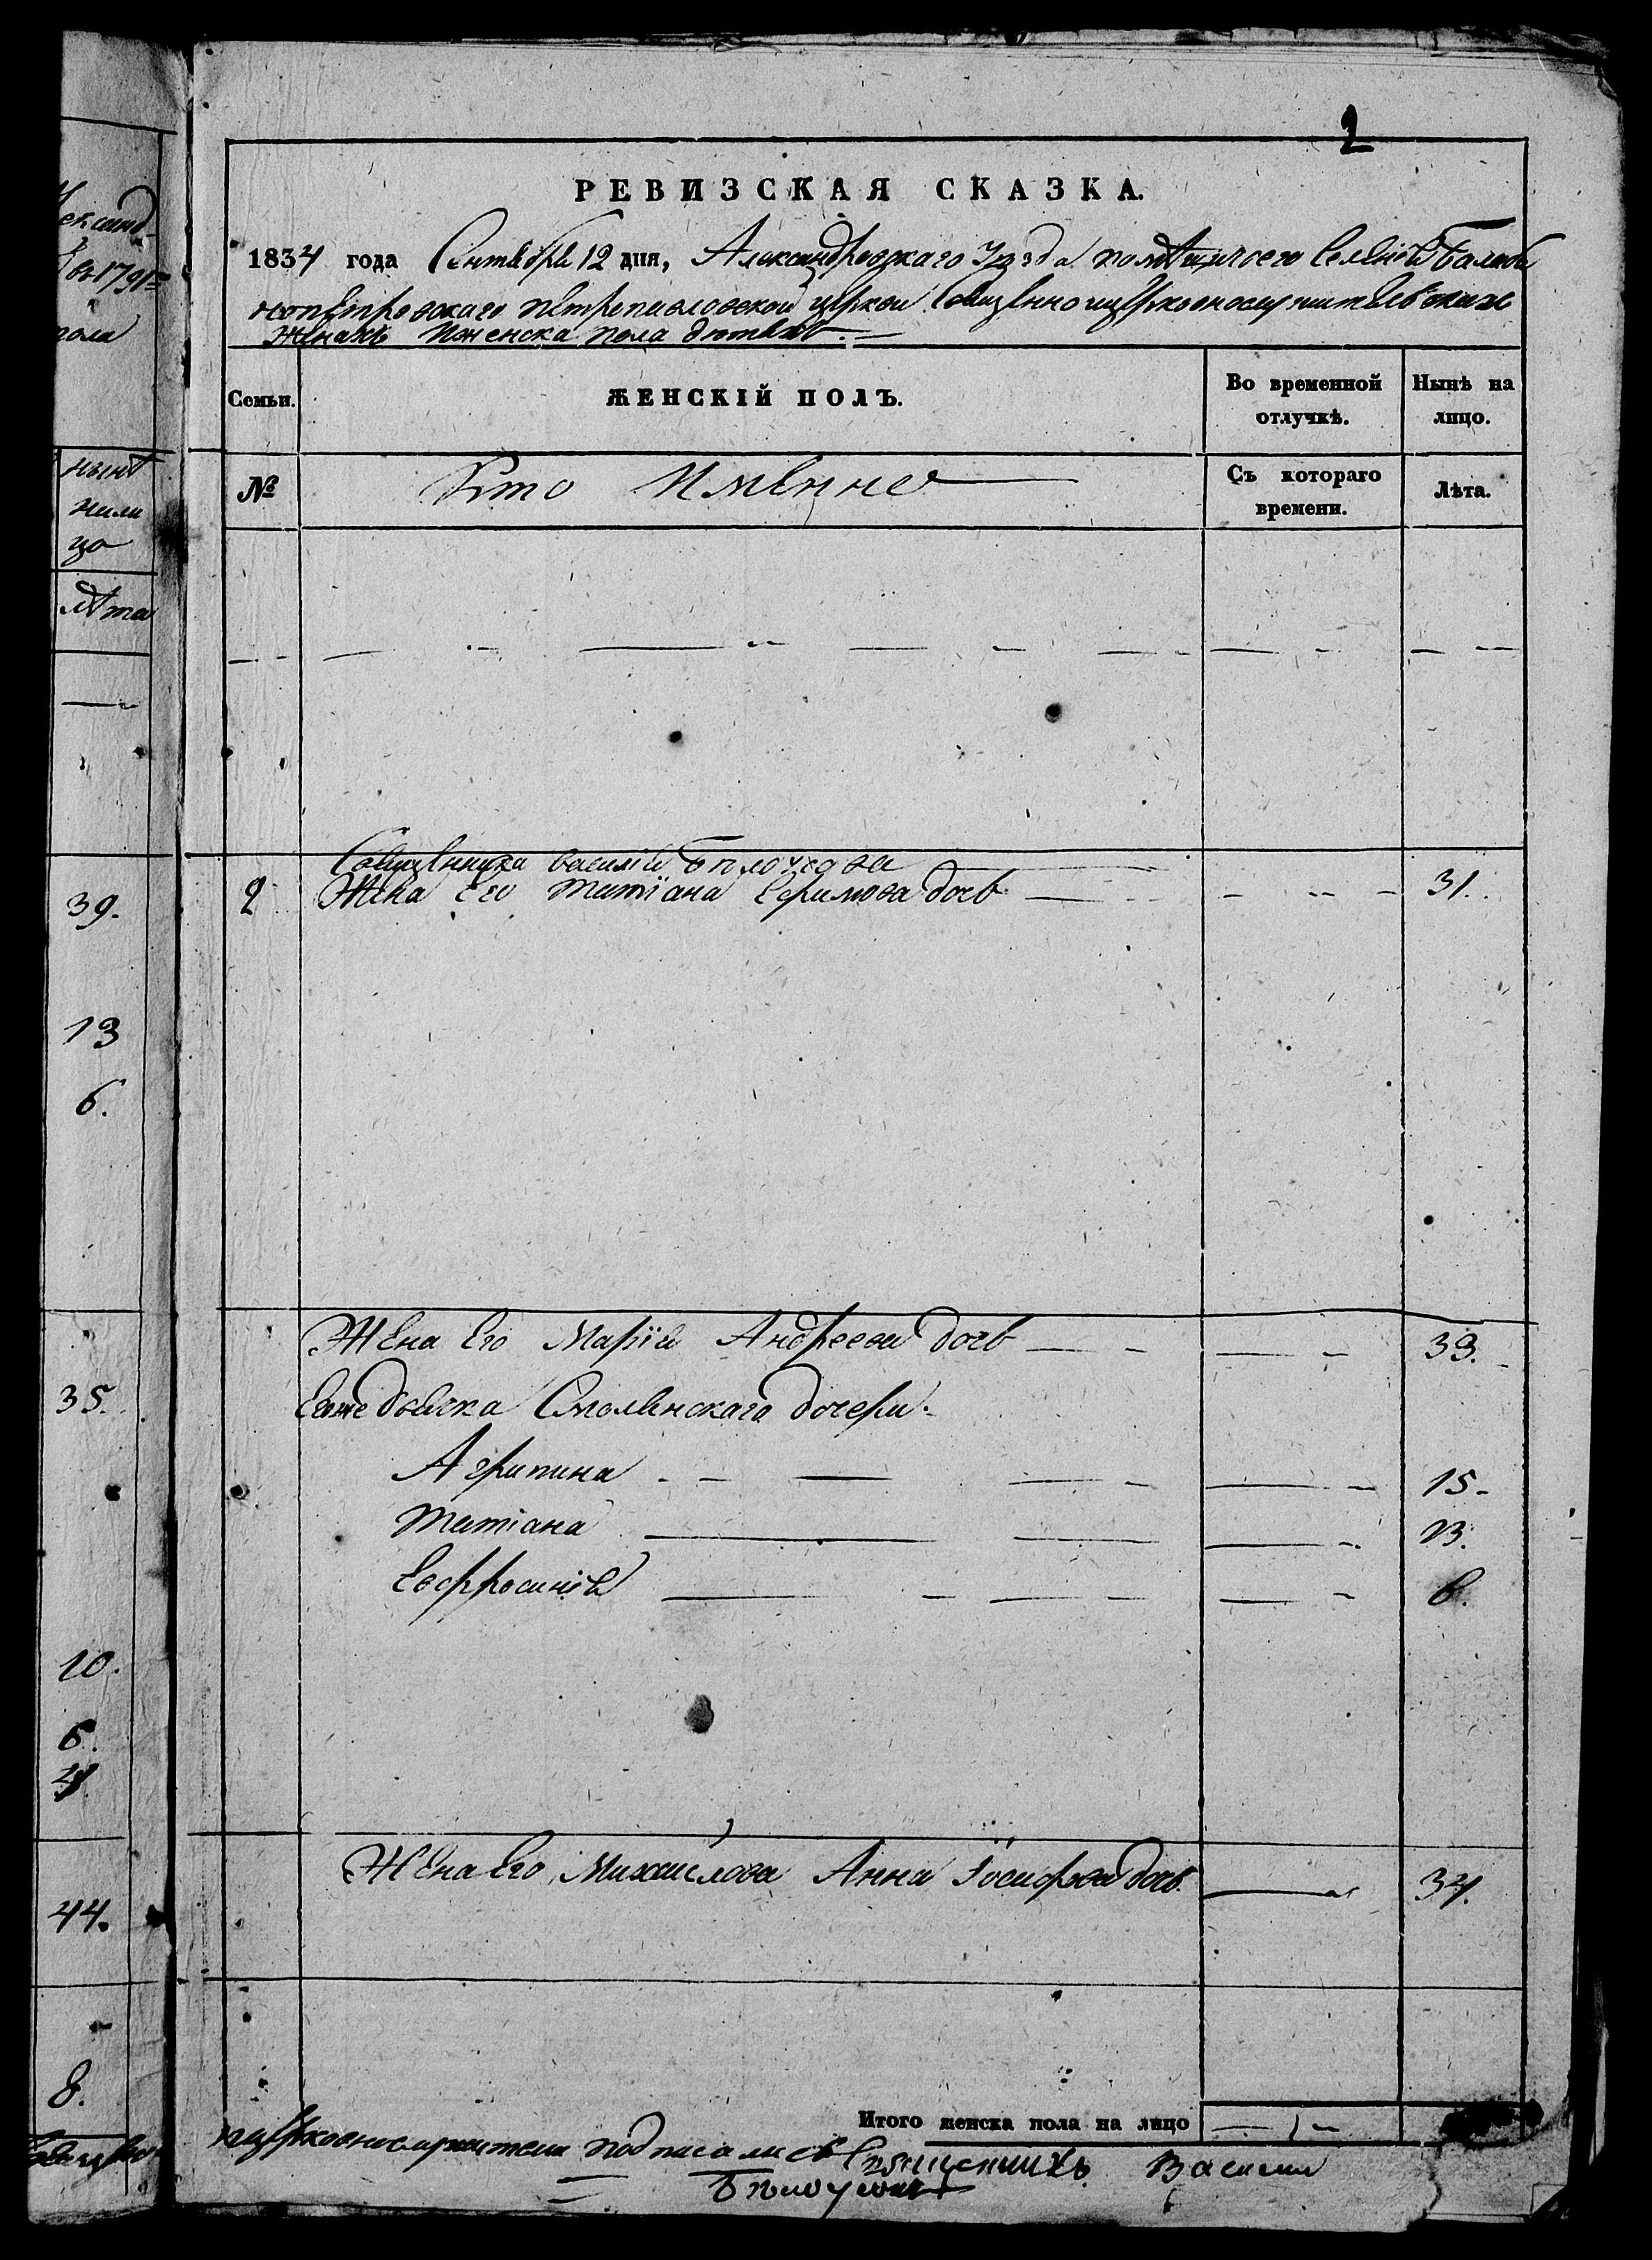 2
РЕВИЗСКАЯ СКАЗКА.
1834 года Сентября 12 дня, Александровскаго уѣзда помѣщичьего селенія Балаби
нопетровскаго Петропавловской церкви Священноицерковнослужительскихъ
женахъ и женска пола дѣтяхъ.
Семьи.
ЖЕНСКІЙ ПОЛЪ.
Во временной отлучкѣ.
Нынѣ на лицо.
№
Кто именно
Съ котораго времени.
Лѣта.
Священника Василія Белоусова
2 Жена его Татіана Ефимова дочь 31.
Жена его Марія Андреева дочь 33.
дьячка Смолянскаго дочери.
Агрипина 15.
Татіана 13.
Евфросинія 6.
Жена его Михайлова Анна Іосифова дочь. 34.
Итого женска пола на лицо
ицерковнослужители подписались Священникъ Василий
Белоусовъ
ександ
1791
пола
нынѣ
нали
цо
лѣта
39.
13
6.
35.
10.
6.
4.
44.
8.